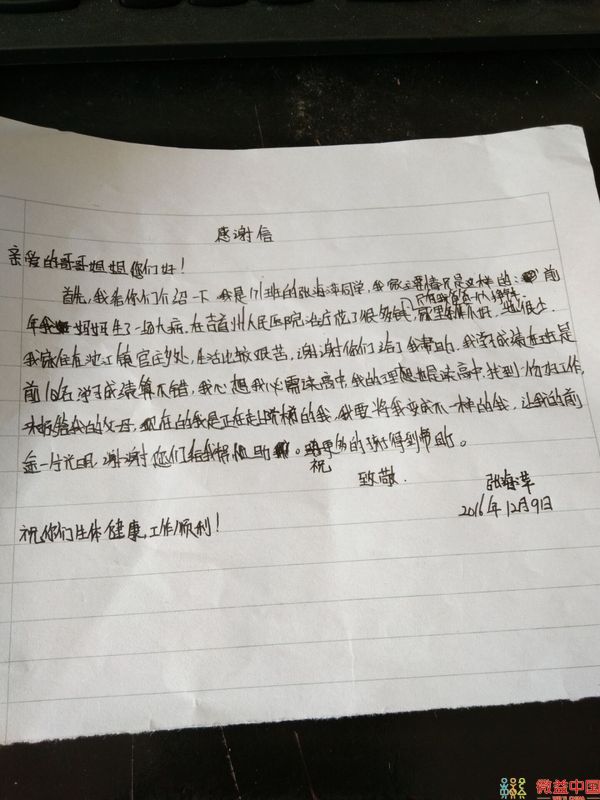 感谢信
亲爱的哥哥姐姐你们好！
首先,我给你们介绍一下,我是171班的张海萍同学,我家里情况是这样的：前
只有我爸爸一个人
年我妈妈生了一场大病,在吉首州人民医院治疗花了很多钱,家里条件不好,
我家住在池江镇官,生活比较艰苦,谢谢你们给了我帮助.我的成绩在班是
前10名学习成绩算不错,我心想我必需读高中,我的理想是读高中,找到一份好工作,
来报答我的父母,现在的我是正在走上阶梯的我,我要将我变成不一样的我,让我的前
金一片光明,谢谢你们给我帮助。祝更多的孩得到帮助。
致敬.
张海萍
2016年12月9日
祝你们生体健康,工作顺利！
微益中国